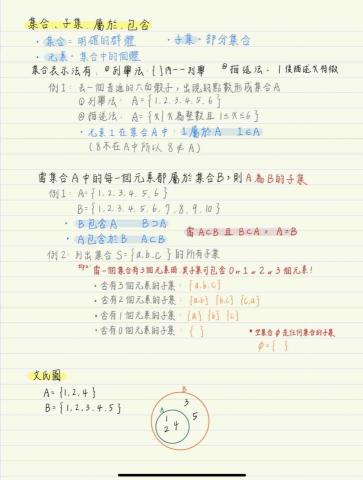 集合、子集、屬於、包含
・集合=明確的群體 ・子集=部分集合
・元素=集合中的個體
集合表示法有: ①列舉法: { }內一一列舉 ②描述法: 1使描述x特徵
例1: 丟一個普通的六面骰子,出現的點數形成集合A
①列舉法: A={1.2.3.4.5.6}
②描述法: A={x|x為整數且1≤x≤6}
・元素1在集合A中: 1屬於A 1∈A
(8不在A中所以8∉A)
當集合A中的每一個元素都屬於集合B,則A為B的子集
例1: A={1.2.3.4.5.6}
B={1.2.3.4.5.6.7.8.9.10}
・B包含A B⊃A
・A包含於B A⊂B
當A⊂B且B⊂A, A=B
例2: 列出集合S={a.b.c}的所有子集
當一個集合有3個元素時,其子集可包含0or1or2or3個元素!
・含有3個元素的子集: {a.b.c}
・含有2個元素的子集: {a.b} {b.c} {c.a}
・含有1個元素的子集: {a} {b} {c}
・含有0個元素的子集: { }
*空集合φ是任何集合的子集
φ={ }
文氏圖
A={1,2,4}
B={1,2,3,4,5}
B
3
A
1
5
2 4